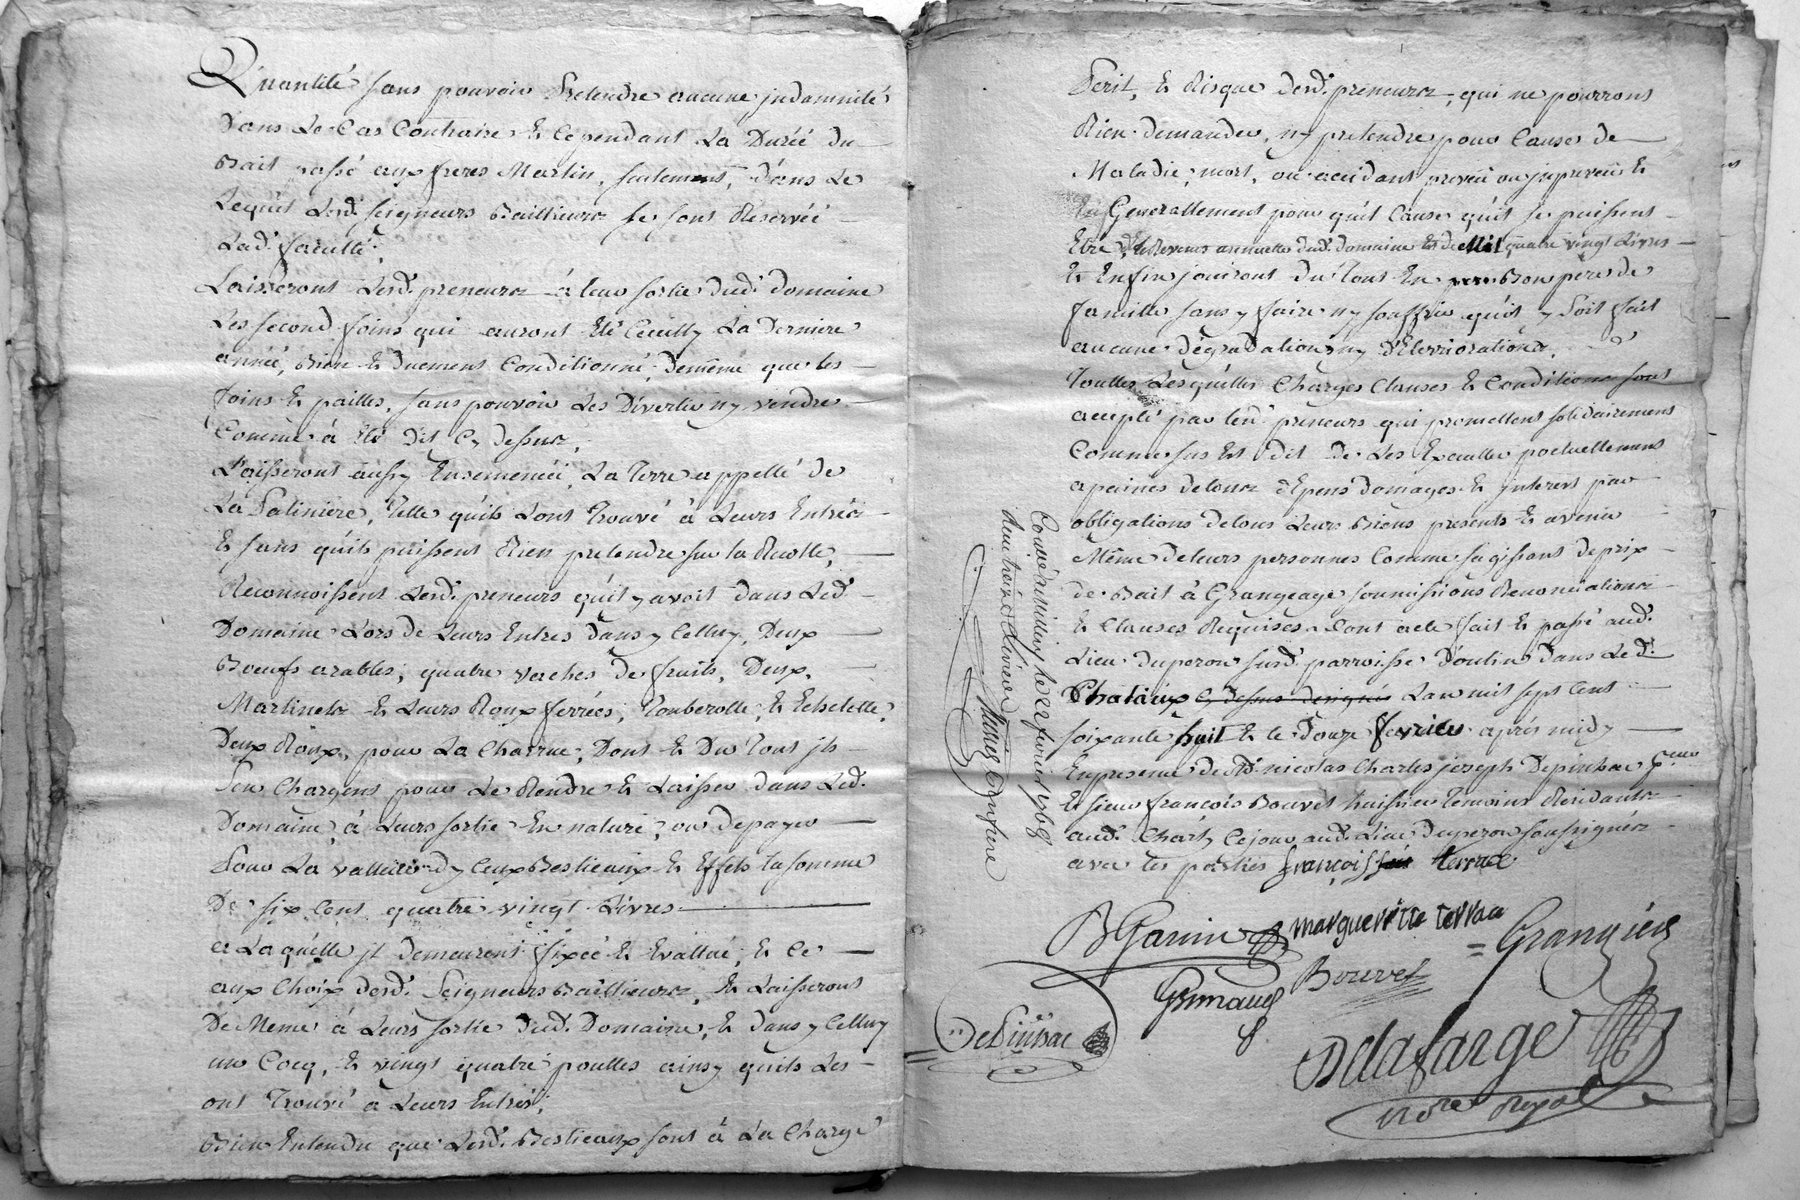 Quantité sans pouvoir Pretendre aucune jndamnité
Dans Le Cas Contraire & Cependant La Durée du
Bail passé aux freres Martin, seulement, dans Le
Lequel Lesd. seigneurs Baillieurs se sont Reservée
Lad. faculté;
Laisseront Lesd. preneurs à leur sortie dud. Domaine
Les second foins qui auront Eté Ceuilly La Derniere
année, Bien & Duement Conditionné; demême que les
foins & pailles, sans pouvoir Les Divertir ny vendre
Comme à Eté dit Cy Dessus;
Laisseront aussy Ensemencéé, La Terre appellé de
La Saliniere, Telle qu'ils Lont Trouvé à Leurs Entrée
& sans qu'ils puissent Rien pretendre sur la Recolte,
Reconnoissent Lesd. preneurs qu'il y avoit dans Led.
Domaine Lors de Leurs Entres dans y Celluy, Deux
Boeufs arables; quatre vaches de fruits, Deux
Martinets & Leurs Roux ferrées; Touberolle, & Echelette,
Deux Roux, pour La Charrue; Dont & Du Tout jls
Seu Chargent pour Le Rendre & Laisser dans Led.
Domaine à Leurs sortie En nature, ou depayer
Pour La valleur dy Ceux Bestieaux & Effets la somme
De six Cent quatre vingt Livres
a Laquelle jl demeurent fixéé & Evallué, & Ce
aux Choix desd. Seigneurs Baillieurs, & Laisseront
De Meme à Leurs sortie dud. Domaine, & dans y Celluy
un Cocq, & vingt quatre poulles ainsy quils Les
ont Trouvé a Leurs Entrée;
Bien Entendu que Lesd. Bestieaux sont à La Charge
Peril, & Risque desd. preneurs, qui ne pourront
Rien demander, ny pretendre pour Causes de
Maladie; mort, ou accidant preveu ou jmpreveu &
Generallement pour quel Cause qu'il se puissent
Etre, Revenus annuelle dud. Domaine Est de Mil quatre vingt Livres
& Enfin jouiront du Tout En Bon pere de
famille sans y faire ny souffrir qu'il y soit fait
aucune dégradation ny déterriorations.
Touttes Lesquelles Charges Clauses & Conditions sont
accepté par lesd. preneurs qui promettent solidairement
Comme sus Est dit de Les Exeautter poctuellement
apeines detous depens domages & jnterest par
obligations detous Leurs Biens presents & avenir
Même deleurs personnes Comme sagissant de prix
de Bail à Grangeage soumissions Renonciations
& Clauses Requises. Dont acte fait & passé aud.
Lieu duperon susd. parroisse d'oulins dans Led.
Chataux cy dessus designés Lan mil sept Cent
soixante huit & le Douze fevrier après midy
En presence de Sr. nicolas Charles joseph Depinhac
& sieur françois Bouvet huissier Temoins Residants
aud. Cejour aud. Lieu duperon soussignéz
avec les parties françois terrace
BGarin
margueritte terrace
Grangier
Grimaud
Bouvet
De Pinhac
Delafarge
notre Royal
Coné a millery le 22 fevrier 1768